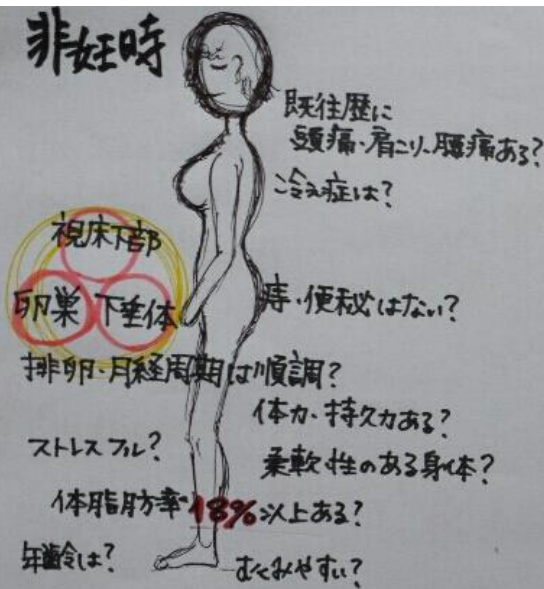 非妊時
既往歴に
頭痛・肩こり、腰痛ある?
冷え症は?
視床下部
卵巣 下垂体
痔・便秘はない?
排卵・月経周期は順調?
体力・持久力ある?
ストレスフル?
柔軟性のある身体?
体脂肪率18%以上ある?
年齢は?
むくみやすい?